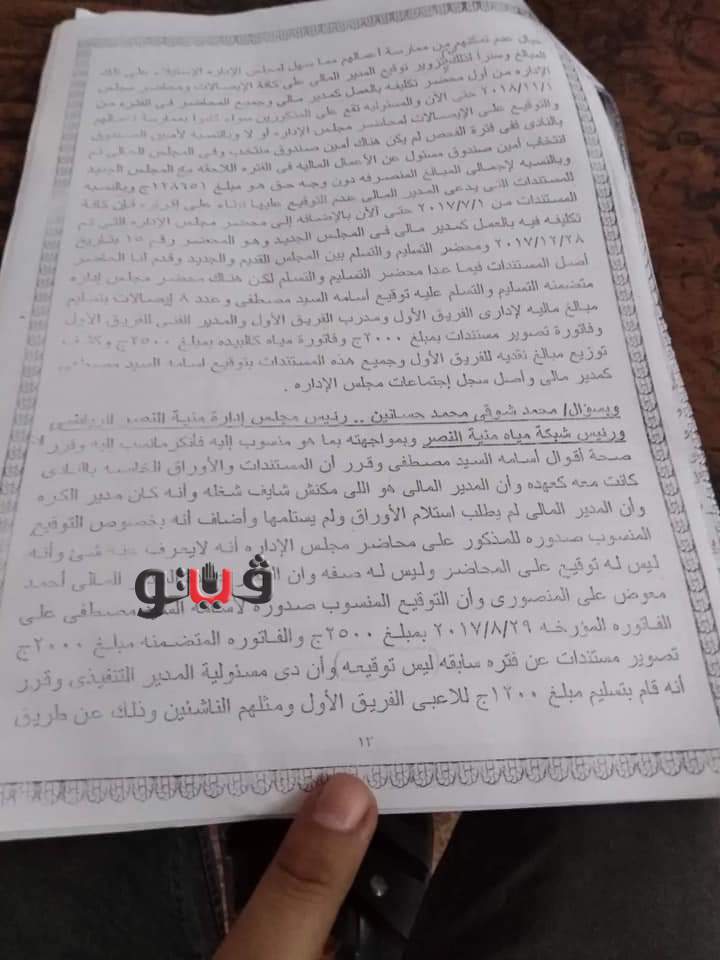 حيال عدم تمكنهم من ممارسة أعمالهم مما سهل لمجلس الإداره الإستيلاء على تلك
المبالغ وسترا لذلك تزوير توقيع المدير المالى على كافة الإيصالات ومحاضر مجلس
الإداره من أول محضر تكليفه بالعمل كمدير مالى وجميع المحاضر فى الفتره من
٢٠١٨/١١/١ حتى الآن والمسئوليه تقع على المذكورين سواء قاموا بممارسة أعمالهم
والتوقيع على الإيصالات لمحاضر مجلس الإداره او لا وبالنسبه لأمين الصندوق
بالنادى ففى فترة الفحص لم يكن هناك أمين صندوق منتخب وفى المجلس الحالى تم
انتخاب أمين صندوق مسئول عن الأعمال الماليه فى الفتره اللاحقه مع المجلس الجديد
وبالنسبه لإجمالى المبالغ المنصرفه دون وجه حق هو مبلغ ١٢٨٦٥١ج وبالنسبه
للمستندات التى يدعى المدير المالى عدم التوقيع عليها بناء على إقراره فإن كافة
المستندات من ٢٠١٧/٧/١ حتى الآن بالإضافه إلى محضر مجلس الإداره التى تم
تكليفه فيه بالعمل كمدير مالى فى المجلس الجديد وهو المحضر رقم ١٥ بتاريخ
٢٠١٧/١٢/٢٨ ومحضر التسليم والتسلم بين المجلس القديم والجديد وقدم لنا الحاضر
أصل المستندات فيما عدا محضر التسليم والتسلم لكن هناك محضر مجلس إداره
متضمنه التسليم والتسلم عليه توقيع أسامه السيد مصطفى وعدد ٨ إيصالات بتسليم
مبالغ ماليه لإدارى الفريق الأول ومدرب الفريق الأول والمدير الفنى الفريق الأول
وفاتورة تصوير مستندات بمبلغ ٢٠٠٠ج وفاتورة مياه كالبيده بمبلغ ٢٥٠٠ج وكشف
توزيع مبالغ نقديه للفريق الأول وجميع هذه المستندات بتوقيع اسامه السيد مصطفى
كمدير مالى وأصل سجل إجتماعات مجلس الإداره .
وبسؤال/ محمد شوقى محمد حسانين .. رئيس مجلس إدارة منية النصر الرياضى
ورئيس شبكة مياه منية النصر وبمواجهته بما هو منسوب إليه فأنكر مانسب اليه وقرر
صحة أقوال أسامه السيد مصطفى وقرر أن المستندات والأوراق الخاصه بالنادى
كانت معه كعهده وأن المدير المالى هو اللى مكنش شايف شغله وأنه كان مدير الكره
وأن المدير المالى لم يطلب استلام الأوراق ولم يستلمها وأضاف أنه بخصوص التوقيع
المنسوب صدوره للمذكور على محاضر مجلس الإداره أنه لايعرف عنه شئ وأنه
ليس له توقيع على المحاضر وليس له صفه وان المالى أحمد
معوض على المنصورى وأن التوقيع المنسوب صدوره لأسامه السيد مصطفى على
الفاتوره المؤرخه ٢٠١٧/٨/٢٩ بمبلغ ٢٥٠٠ج والفاتوره المتضمنه مبلغ ٢٠٠٠ج
تصوير مستندات عن فتره سابقه ليس توقيعه وأن دى مسئولية المدير التنفيذى وقرر
أنه قام بتسليم مبلغ ١٢٠٠ج للاعبى الفريق الأول ومثلهم الناشئين وذلك عن طريق
١٢
ڤيتو